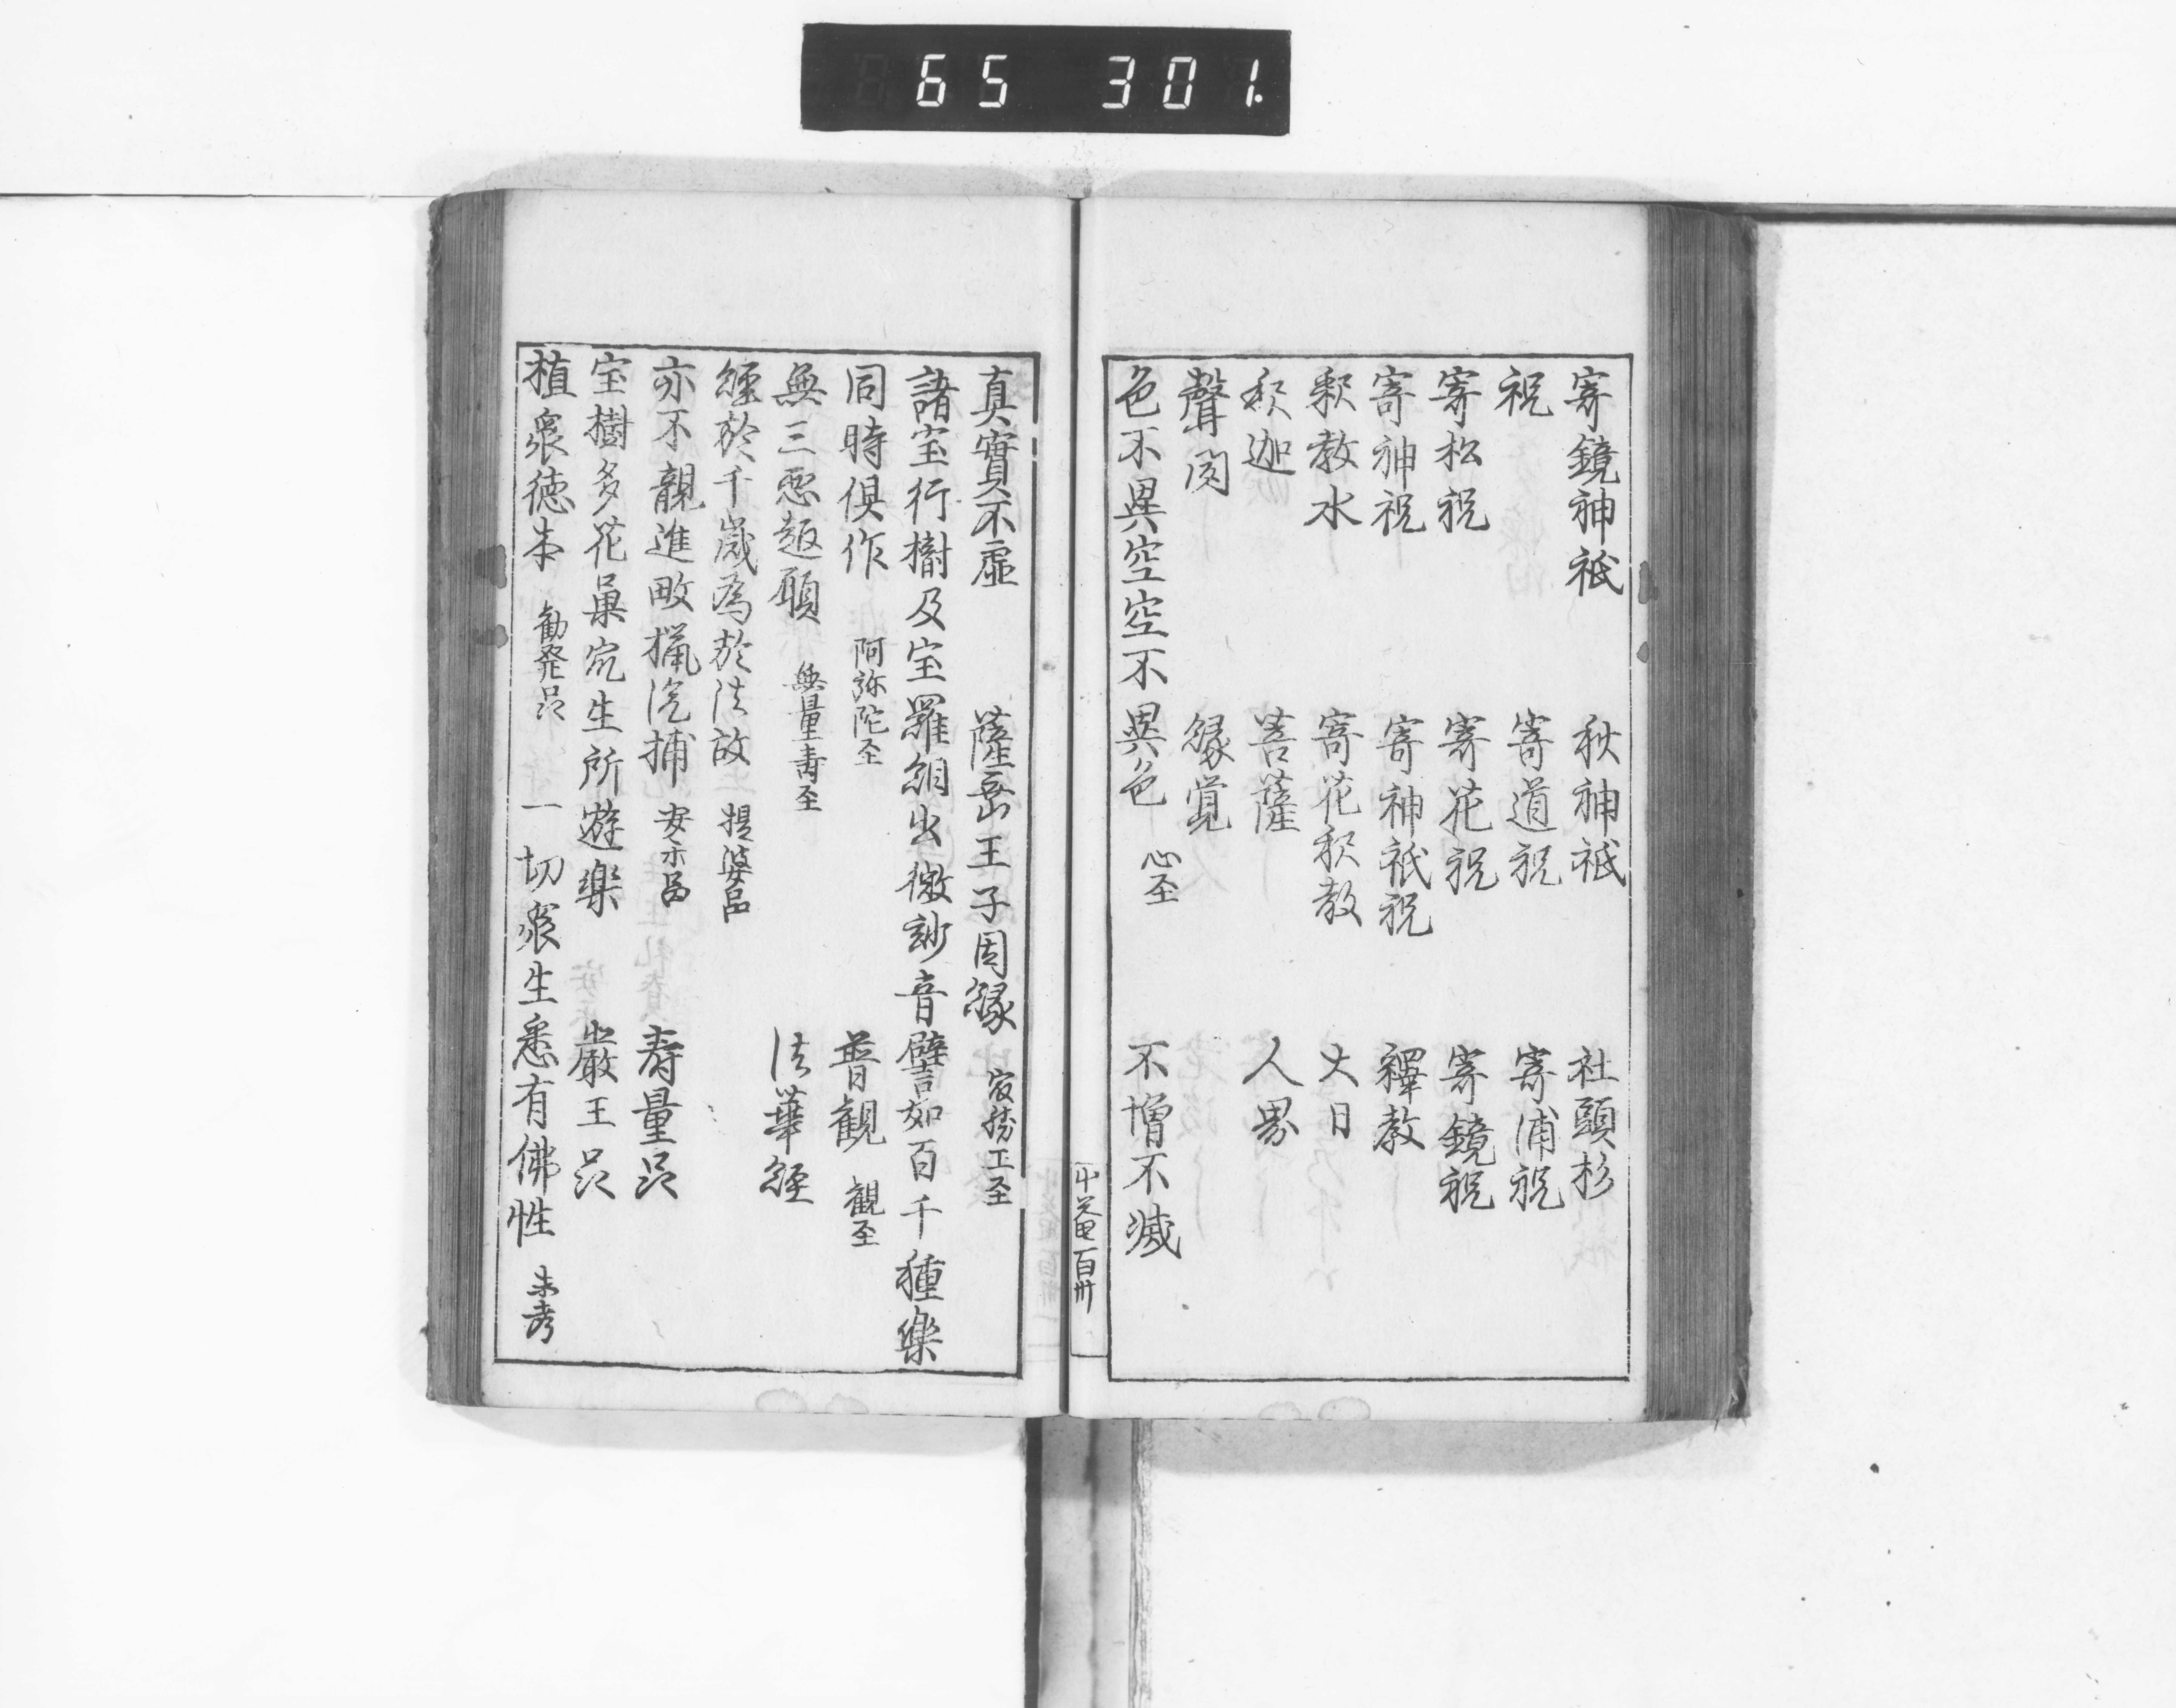 65 301.
寄鏡神祇 秋神祇 社頭杉
祝 寄道祝 寄浦祝
寄松祝 寄花祝 寄鏡祝
寄神祝 寄神祇祝 釋教
釈教水 寄花釈教 大日
釈迦 菩薩 人界
聲聞 縁覚
色不異空空不異色 心至 不増不滅
百卅
真實不虚 薩埵王子因縁 最勝王至
諸宝行樹及宝羅網出微妙音譬如百千種楽
同時倶作 阿弥陀至 普観 観至
無三悪趣願 無量壽至 法華經
經於千歳為於法故 提婆品
亦不親進畋猟漁捕 安楽品 寿量品
宝樹多花菓衆生所遊楽 嚴王品
植衆徳本 勧発品 一切衆生悉有佛性 未考